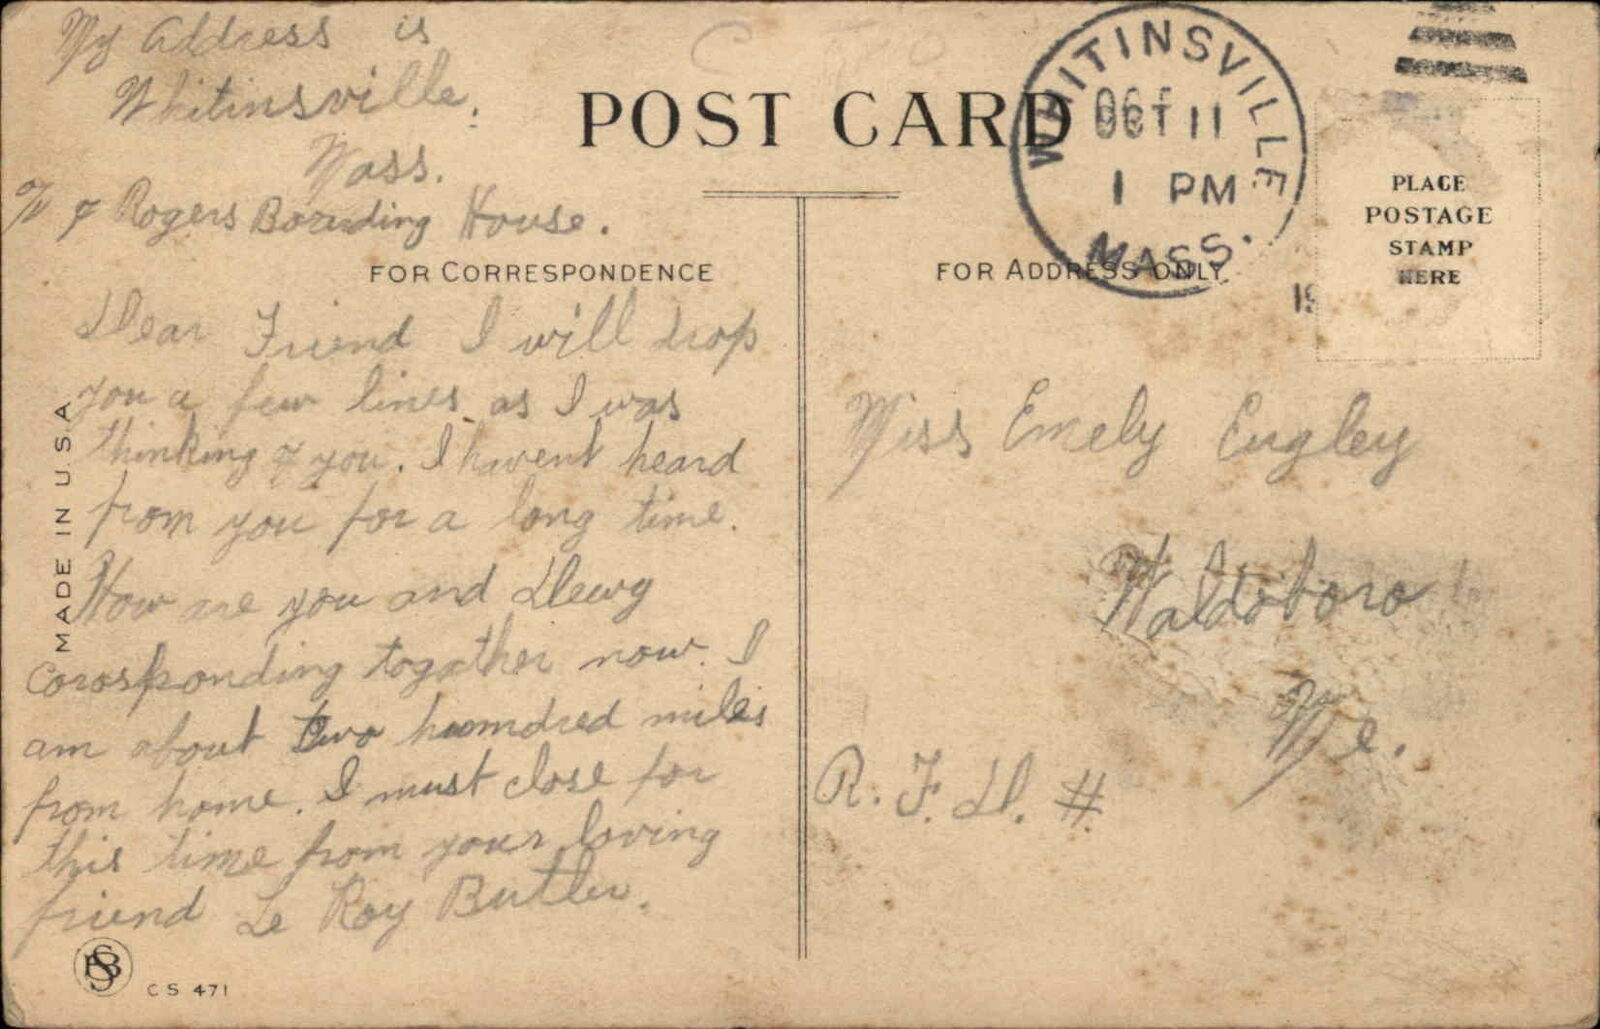 My Address is
Whitinsville,
Mass.
% of Rogers Boarding House.
POST CARD
WHITINSVILLE
OCT 11
1 PM
MASS.
19
PLACE
POSTAGE
STAMP
HERE
FOR CORRESPONDENCE
FOR ADDRESS ONLY
Dear Friend I will drop
you a few lines as I was
thinking of you. I havent heard
from you for a long time.
How are you and Dewy
corosponding togather now. I
am about two hunndred miles
from home. I must close for
this time from your loving
friend Le Roy Butler.
MADE IN U.S.A.
Miss Emely Eugley
Waldoboro
Me.
R. F. D. #
CS 471